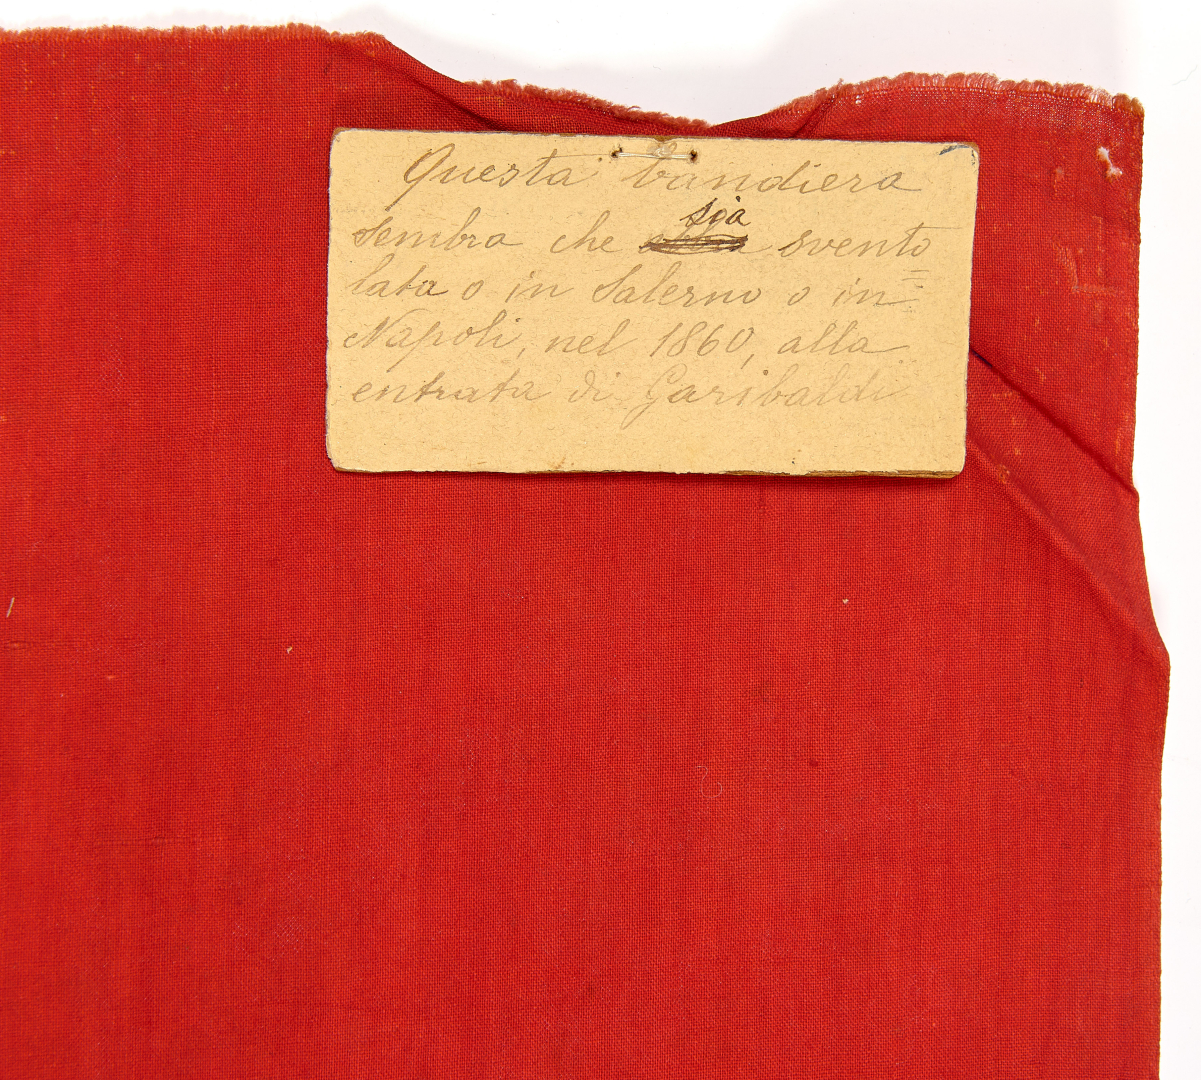 Questa bandiera
sembra che sia svento
lata o in Salerno o in
Napoli, nel 1860, alla
entrata di Garibaldi